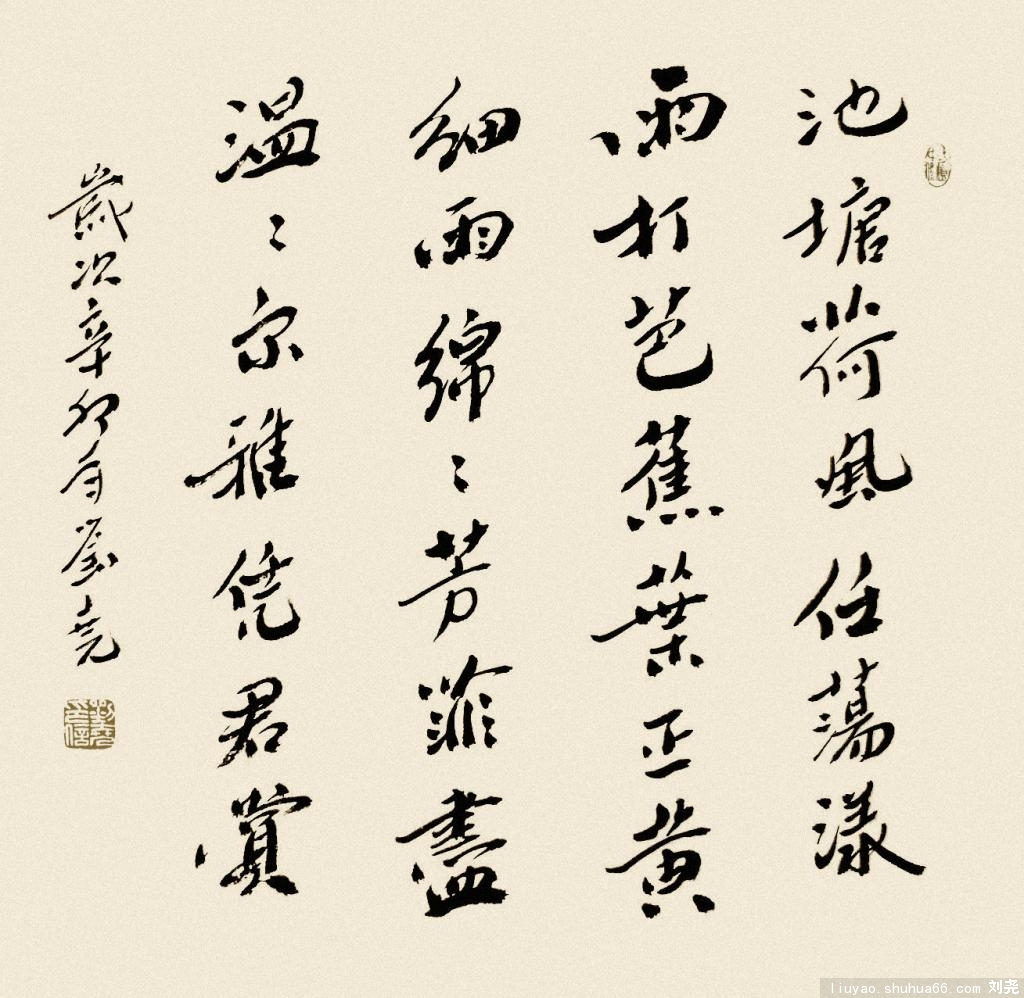 池塘荷風任蕩漾
雨打芭蕉葉正黄
細雨綿〻芳菲盡
温〻宗雅凭君賞
歲次辛卯有劉堯
liuyao.shuhua66.com 刘尧